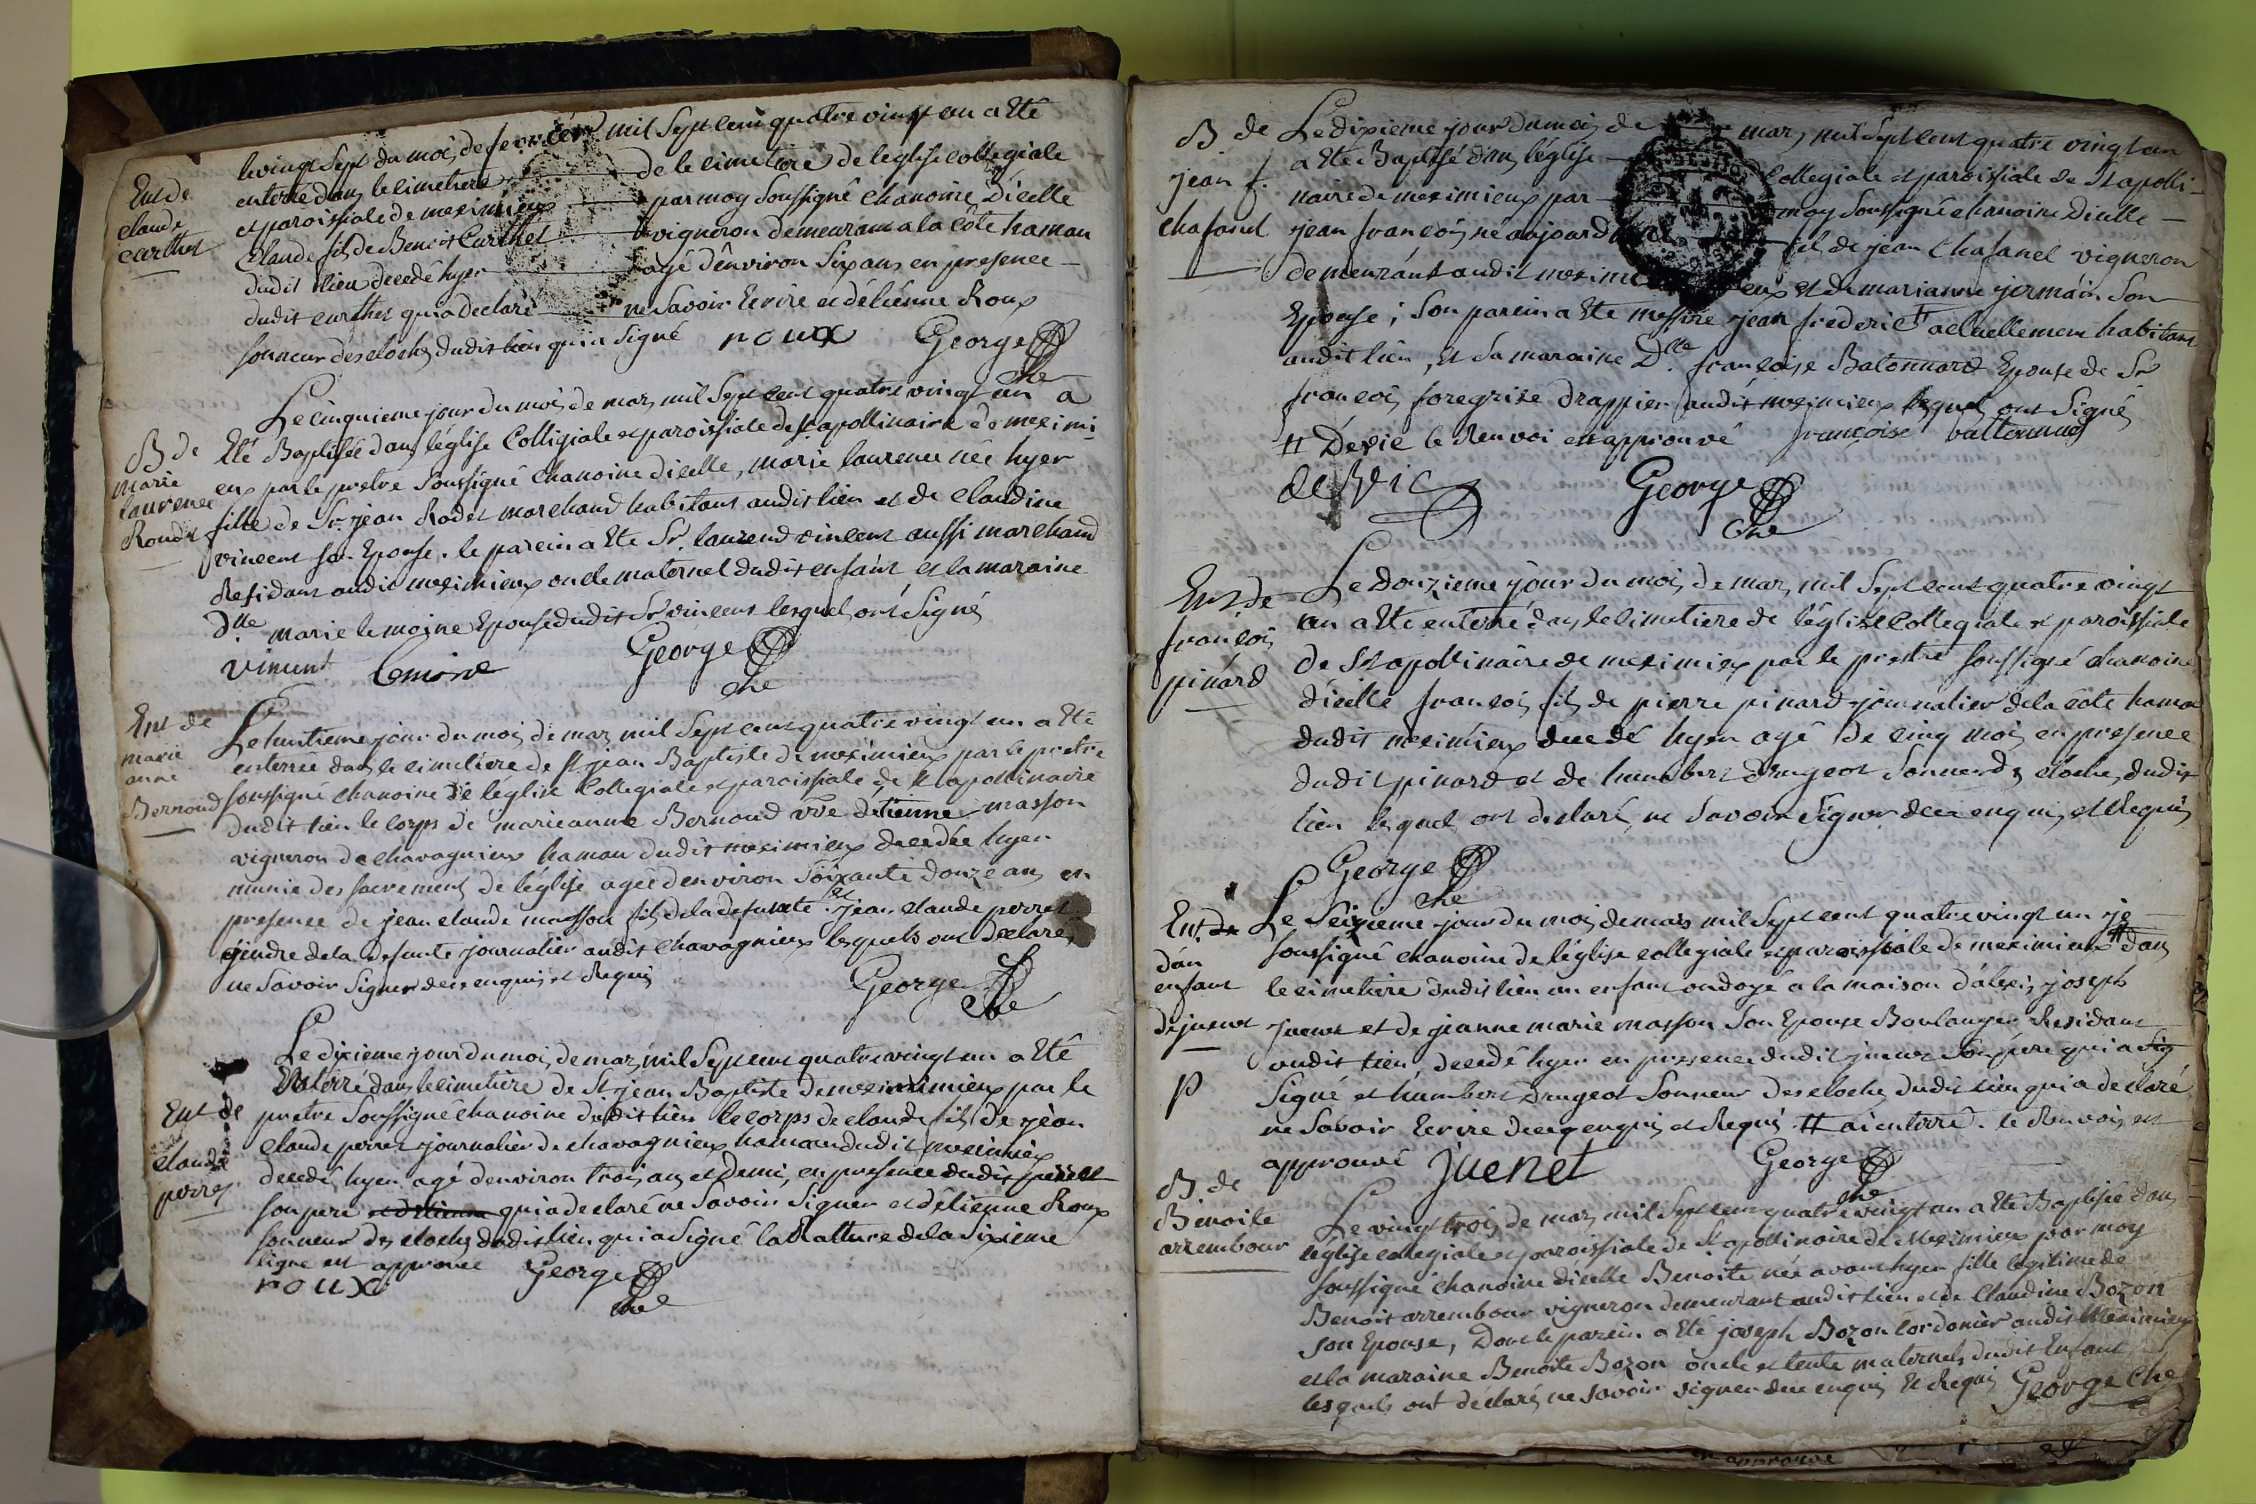 Ent de
claude
curthet
le vingt sept du mois de fevrier mil sept cent quatre vingt un a Eté
enterré dans le cimetiere de le cimetiere de leglise collegiale
et paroissiale de meximieux par moy soussigné chanoine d'icelle
Claude fils de Benoit Curthet vigneron demeurant a la côte hamau
dudit lieu decedé hyer agé d'environ six ans en presence
dudit curthet qui a declaré ne savoir Ecrire et d'etienne Roux
sonneur des cloches dudit lieu qui a signé roux George
che
B de
marie
laurence
Rondet
Le cinquieme jour du mois de mars mil sept cent quatre vingt un a
Eté Baptisée dans l'église Collegiale et paroissiale de st apollinaire de meximi-
eux par le pretre soussigné chanoine d'icelle, marie laurence née hyer
fille de Sr. jean Rodet marchand habitant audit lieu et de claudine
vincent son Epouse. le parein a Eté Sr. laurend vincent aussi marchand
Residant audit meximieux oncle maternel dudit enfant et la maraine
Dlle marie lemoine Epouse dudit Sr vincent lesquels ont signé
vincent Lemoine George
che
Ent de
marie
anne
Bernoud
Le huitieme jour du mois de mars mil sept cent quatre vingt un a Eté
enterrée dans le cimetiére de st jean Baptiste de meximieux par le pretre
soussigné chanoine de l'église Collegiale et paroissiale de st apollinaire
dudit lieu le corps de marieanne Bernoud vve detienne masson
vigneron de chavagnieux hamau dudit meximieux decedée hyer
munie des sacrements de l'église agée denviron soixante douze ans en
presence de jean claude masson fils de la defunte et jean claude perret
gendre de la defunte journalier audit chavagnieux lesquels ont declaré
ne savoir signer de ce enquis et Requis George
che
Ent de
claude
perret
Le dixieme jour du mois de mars mil sept cent quatre vingt un a Eté
Enterré dans le cimetiére de St jean Baptiste de meximieux par le
pretre soussigné chanoine dudit lieu le corps de claude fils de jean
claude perret journalier de chavagnieux hamau dudit meximieux
decedé hyer agé d'environ trois ans et demi, en presence dudit perret
son pere et detienne qui a declaré ne savoir signer et d'etienne Roux
sonneur des cloches dudit lieu qui a signé la Ratture de la sixieme
ligne est approuvée George
roux che
B. de
jean f.
chafanel
Le dixieme jour du mois de mars mil sept cent quatre vingt un
a Eté Baptisé dans l'église Collegiale et paroissiale de st apolli-
naire de meximieux par moy soussigné chanoine d'icelle
jean francois né aujourd fils de jean Chafanel vigneron
demeurant audit meximieux et de marianne jermain son
Epouse; son parein a Eté messire jean frederic # actuellement habitant
audit lieu, et sa maraine Dlle. francoise Batonnard Epouse de Sr
francois foregrise drappier audit meximieux lesquels ont signé
# Devie le Renvoi est approuvé francoise battonnard
de Bric George
che
Ent. de
francois
pinard
Le Douzieme jour du mois de mars mil sept cent quatre vingt
un a Eté enterré dans le cimetiere de l'église collegiale et paroissiale
de St apollinaire de meximieux par le pretre soussigné chanoine
d'icelle francois fils de pierre pinard journalier de la côte hamau
dudit meximieux decedé hyer agé de cinq mois en presence
dudit pinard et de humbert drugeot sonneur des cloches dudit
lieu lesquel ont declaré ne savoir signer de ce enquis et Requis
George
che
Ent. de
d'un
enfant
de juenet
p
Le seizieme jour du mois de mars mil sept cent quatre vingt un je
soussigné chanoine de l'église collegiale et paroissiale de meximieux # dans
le cimetiére dudit lieu un enfant ondoyé a la maison d'alexis joseph
juenet et de jeanne marie masson son Epouse Boulanger Residant
audit lieu, decedé hyer en presence dudit juenet son pere qui a sig
signé et humbert drugeot sonneur des cloches dudit lieu qui a declaré
ne savoir Ecrire de ce enquis et Requis. # ai enterré. le Renvois est
approuvé juenet George
che
B. de
Benoite
arrembour
Le vingt trois de mars mil sept cent quatre vingt un a Eté Baptisée dans
l'église collegiale et paroissiale de St apollinaire de Meximieux par moy
soussigné chanoine d'icelle Benoite née avant hyer fille legitime de
Benoit arrembour vigneron demeurant audit lieu et de Claudine Bozon
son Epouse, Dont le parein a Eté joseph Bozon cordonier audit Meximieux
et la maraine Benoite Bozon oncle et tente maternels dudit Enfant
lesquels ont déclaré ne savoir signer de ce enquis Et Requis George Che
approuvé